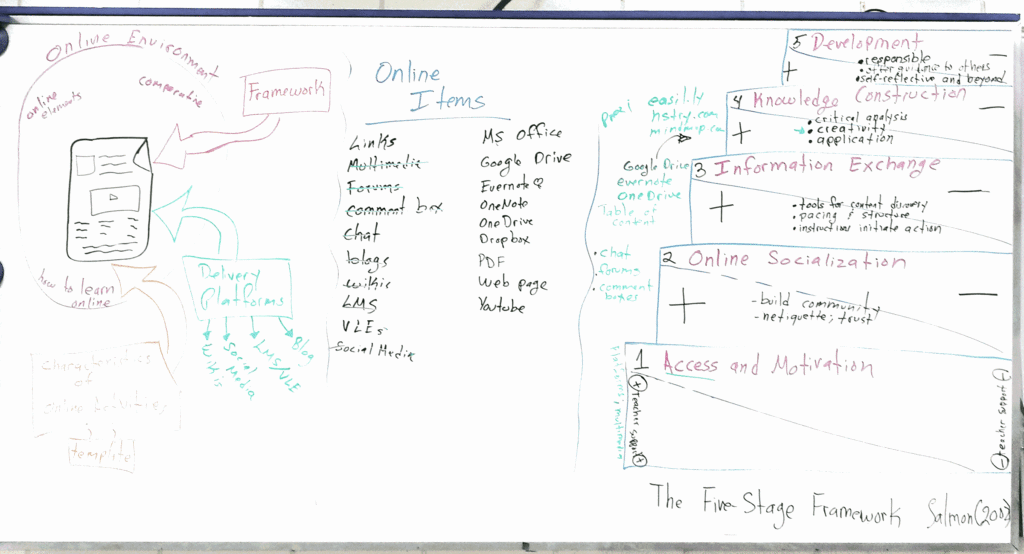 Online Environment
online elements
comparative
Framework
how to learn online
Delivery Platforms
Wikis
Social Media
LMS/VLE
Blog
Characteristics
of
Online Activities
template
Online
Items
Links
Multimedia
Forums
comment box
chat
blogs
wikis
LMS
VLEs
Social Media
MS Office
Google Drive
Evernote
OneNote
OneDrive
Dropbox
PDF
Web page
Youtube
5 Development
• responsible
• offer guidance to others
• self-reflective and beyond
+
—
4 Knowledge Construction
• critical analysis
• creativity
• application
+
—
prezi
easilly
hstry.com
Google Drive
evernote
OneDrive
Table of
content
3 Information Exchange
• tools for content discovery
• pacing & structure
• instructions initiate action
+
—
• chat
• forums
• comment
boxes
2 Online Socialization
- build community
- netiquette; trust
+
—
1 Access and Motivation
platforms, multimedia
+ Teacher support +
- teacher support -
The Five-Stage Framework Salmon